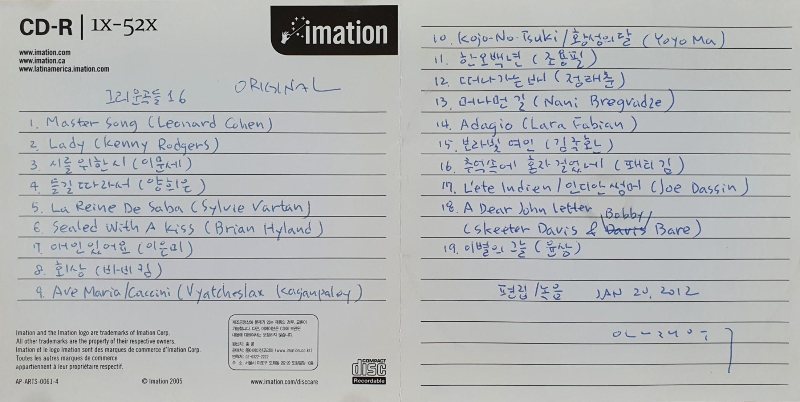 CD-R | 1X-52X
imation
www.imation.com
www.imation.ca
www.latinamerica.imation.com
그리운곡들 16 ORIGINAL
1. Master Song (Leonard Cohen)
2. Lady (Kenny Rodgers)
3. 시를 위한 시 (이문세)
4. 들길 따라서 (양희은)
5. La Reine De Saba (Sylvie Vartan)
6. Sealed With A Kiss (Brian Hyland)
7. 애인있어요 (이은미)
8. 회상 (비비킹)
9. Ave Maria/Caccini (Vyatcheslax Kaganpaley)
Imation and the Imation logo are trademarks of Imation Corp.
All other trademarks are the property of their respective owners.
Imation et le logo imation sont des marques de commerce d'Imation Corp.
Toutes les autres marques de commerce
appartiennent à leur propriétaire respectif.
AP-ARTS-0061-4 © Imation 2005 www.imation.com/disccare
COMPACT
disc
Recordable
10. Kojo-No-Tsuki/황성의달 (YoYo Ma)
11. 한오백년 (조용필)
12. 떠나가는 배 (정태춘)
13. 머나먼 길 (Nani Bregvadze)
14. Adagio (Lara Fabian)
15. 보라빛 여인 (김추환)
16. 추억속에 혼자 걸었네 (패티김)
17. L'ete Indien/인디안썸머 (Joe Dassin)
18. A Dear John letter
(Skeeter Davis & Bobby Bare)
19. 이별의 그늘 (윤상)
편집/녹음 JAN 20, 2012